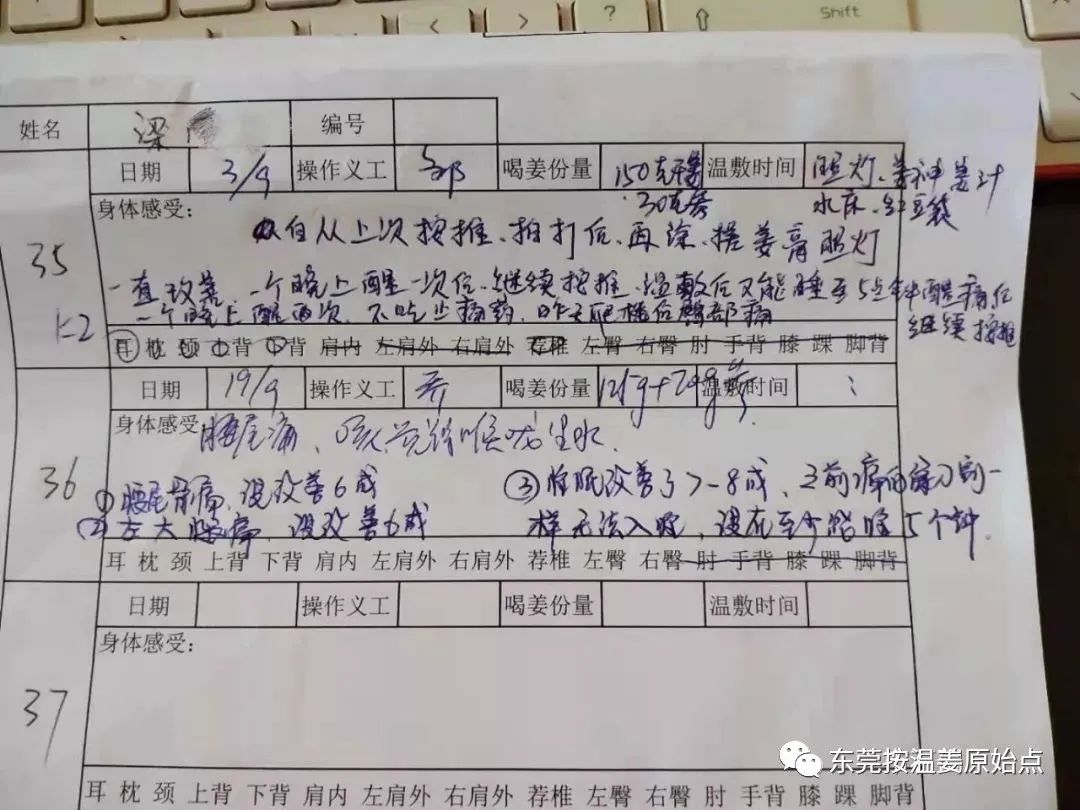 ? Shift
姓名 梁 编号
日期 3/9 操作义工 喝姜份量 150克干姜 温敷时间 照灯、姜神姜汁
30克参 水床、红豆袋
身体感受:
自从上次按推、拍打后、再涂、搓姜膏照灯
35 一直改善、一个晚上醒一次后、继续按推、温敷后又能睡至5点 醒痛后
K2 一个晚上醒两次、不吃止痛药、昨天 后臀部痛 继续按推
耳 枕 颈 上背 下背 肩内 左肩外 右肩外 荐椎 左臀 右臀 肘 手背 膝 踝 脚背
日期 19/9 操作义工 乔 喝姜份量 125g+20g参 温敷时间
身体感受 腰尾痛、 喉咙生水
36 ① 腰尾骨痛、 改善6成 ③ 睡眠改善了7-8成、之前痛的 刀割一
② 左大腿痛、 改善6成 样无法入眠, 至少 睡5个钟.
耳 枕 颈 上背 下背 肩内 左肩外 右肩外 荐椎 左臀 右臀 肘 手背 膝 踝 脚背
日期 操作义工 喝姜份量 温敷时间
身体感受:
37
耳 枕 颈 上背 下背 肩内 左肩外 右肩外 荐椎 左臀 右臀 肘 手背 膝 踝 脚背
东莞按温姜原始点